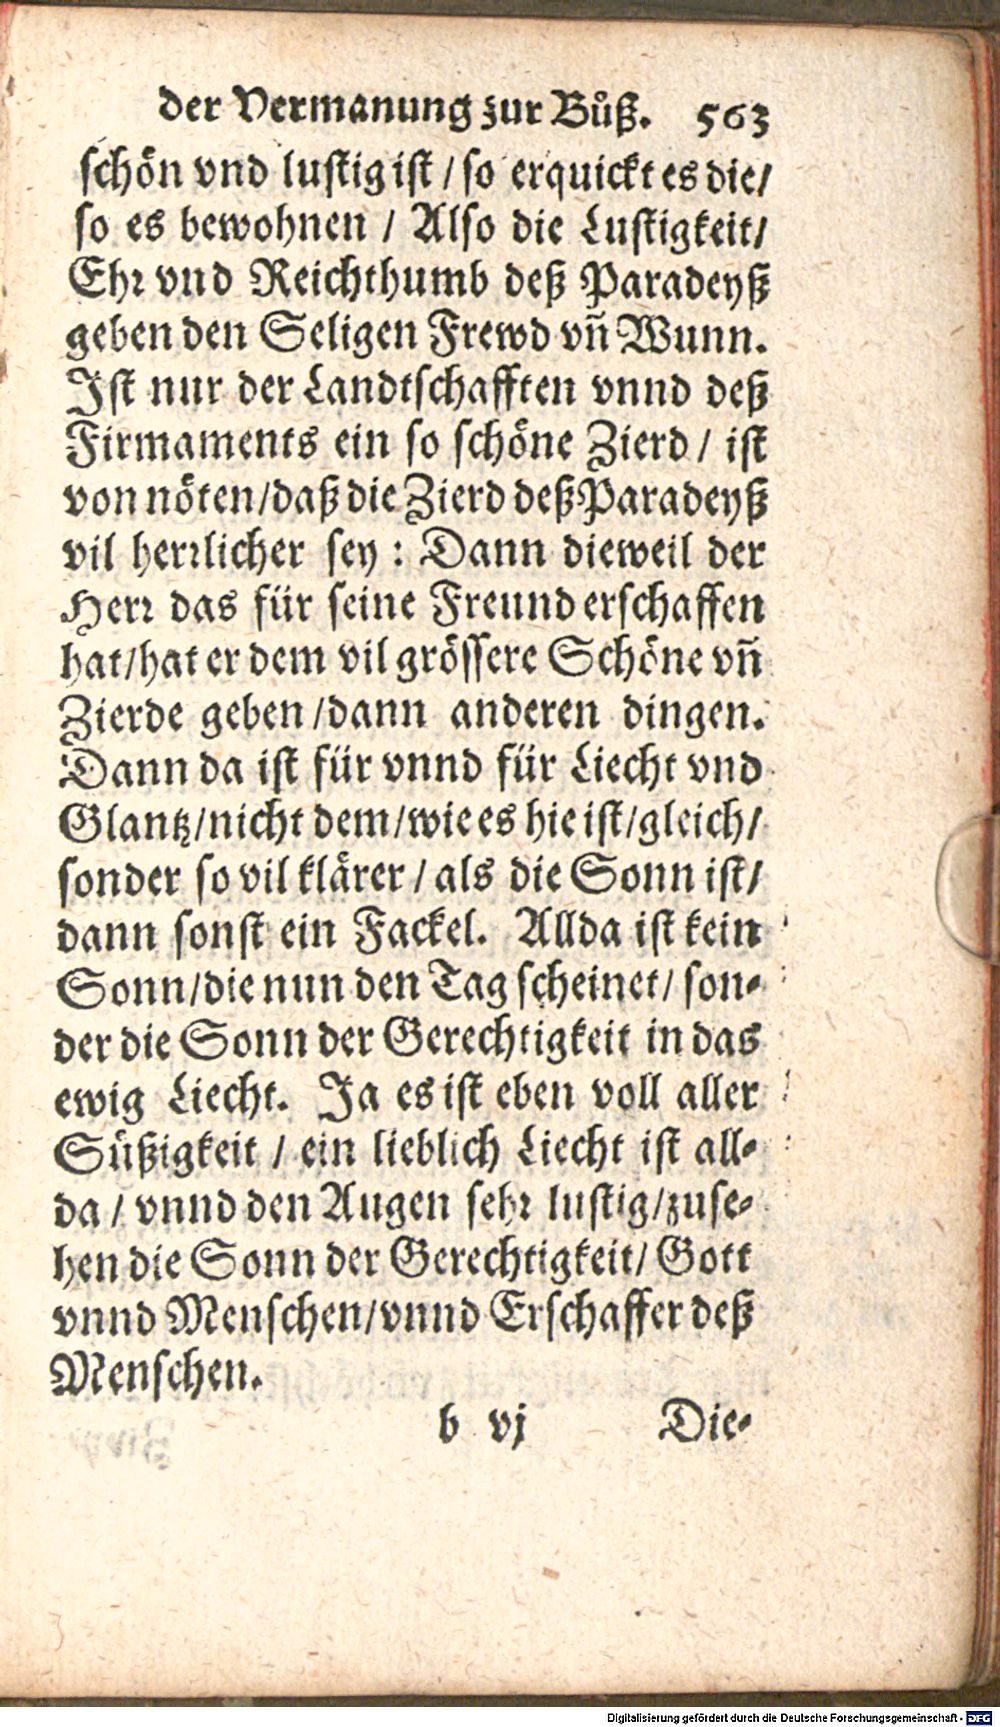 der Vermanung zur Bůß. 563
schön vnd lustig ist / so erquickt es die/
so es bewohnen / Also die Lustigkeit/
Ehr vnd Reichthumb deß Paradeyß
geben den Seligen Frewd vñ Wunn.
Ist nur der Landtschafften vnnd deß
Firmaments ein so schöne Zierd / ist
von nöten/daß die Zierd deß Paradeyß
vil herrlicher sey : Dann dieweil der
Herr das für seine Freund erschaffen
hat/hat er dem vil grössere Schöne vñ
Zierde geben /dann anderen dingen.
Dann da ist für vnnd für Liecht vnd
Glantz/nicht dem/wie es hie ist/gleich/
sonder so vil klärer / als die Sonn ist/
dann sonst ein Fackel. Allda ist kein
Sonn/die nun den Tag scheinet/ son-
der die Sonn der Gerechtigkeit in das
ewig Liecht. Ja es ist eben voll aller
Süßigkeit / ein lieblich Liecht ist all-
da / vnnd den Augen sehr lustig/zuse-
hen die Sonn der Gerechtigkeit/ Gott
vnnd Menschen/vnnd Erschaffer deß
Menschen.
b vj Die-
Digitalisierung gefördert durch die Deutsche Forschungsgemeinschaft - DFG